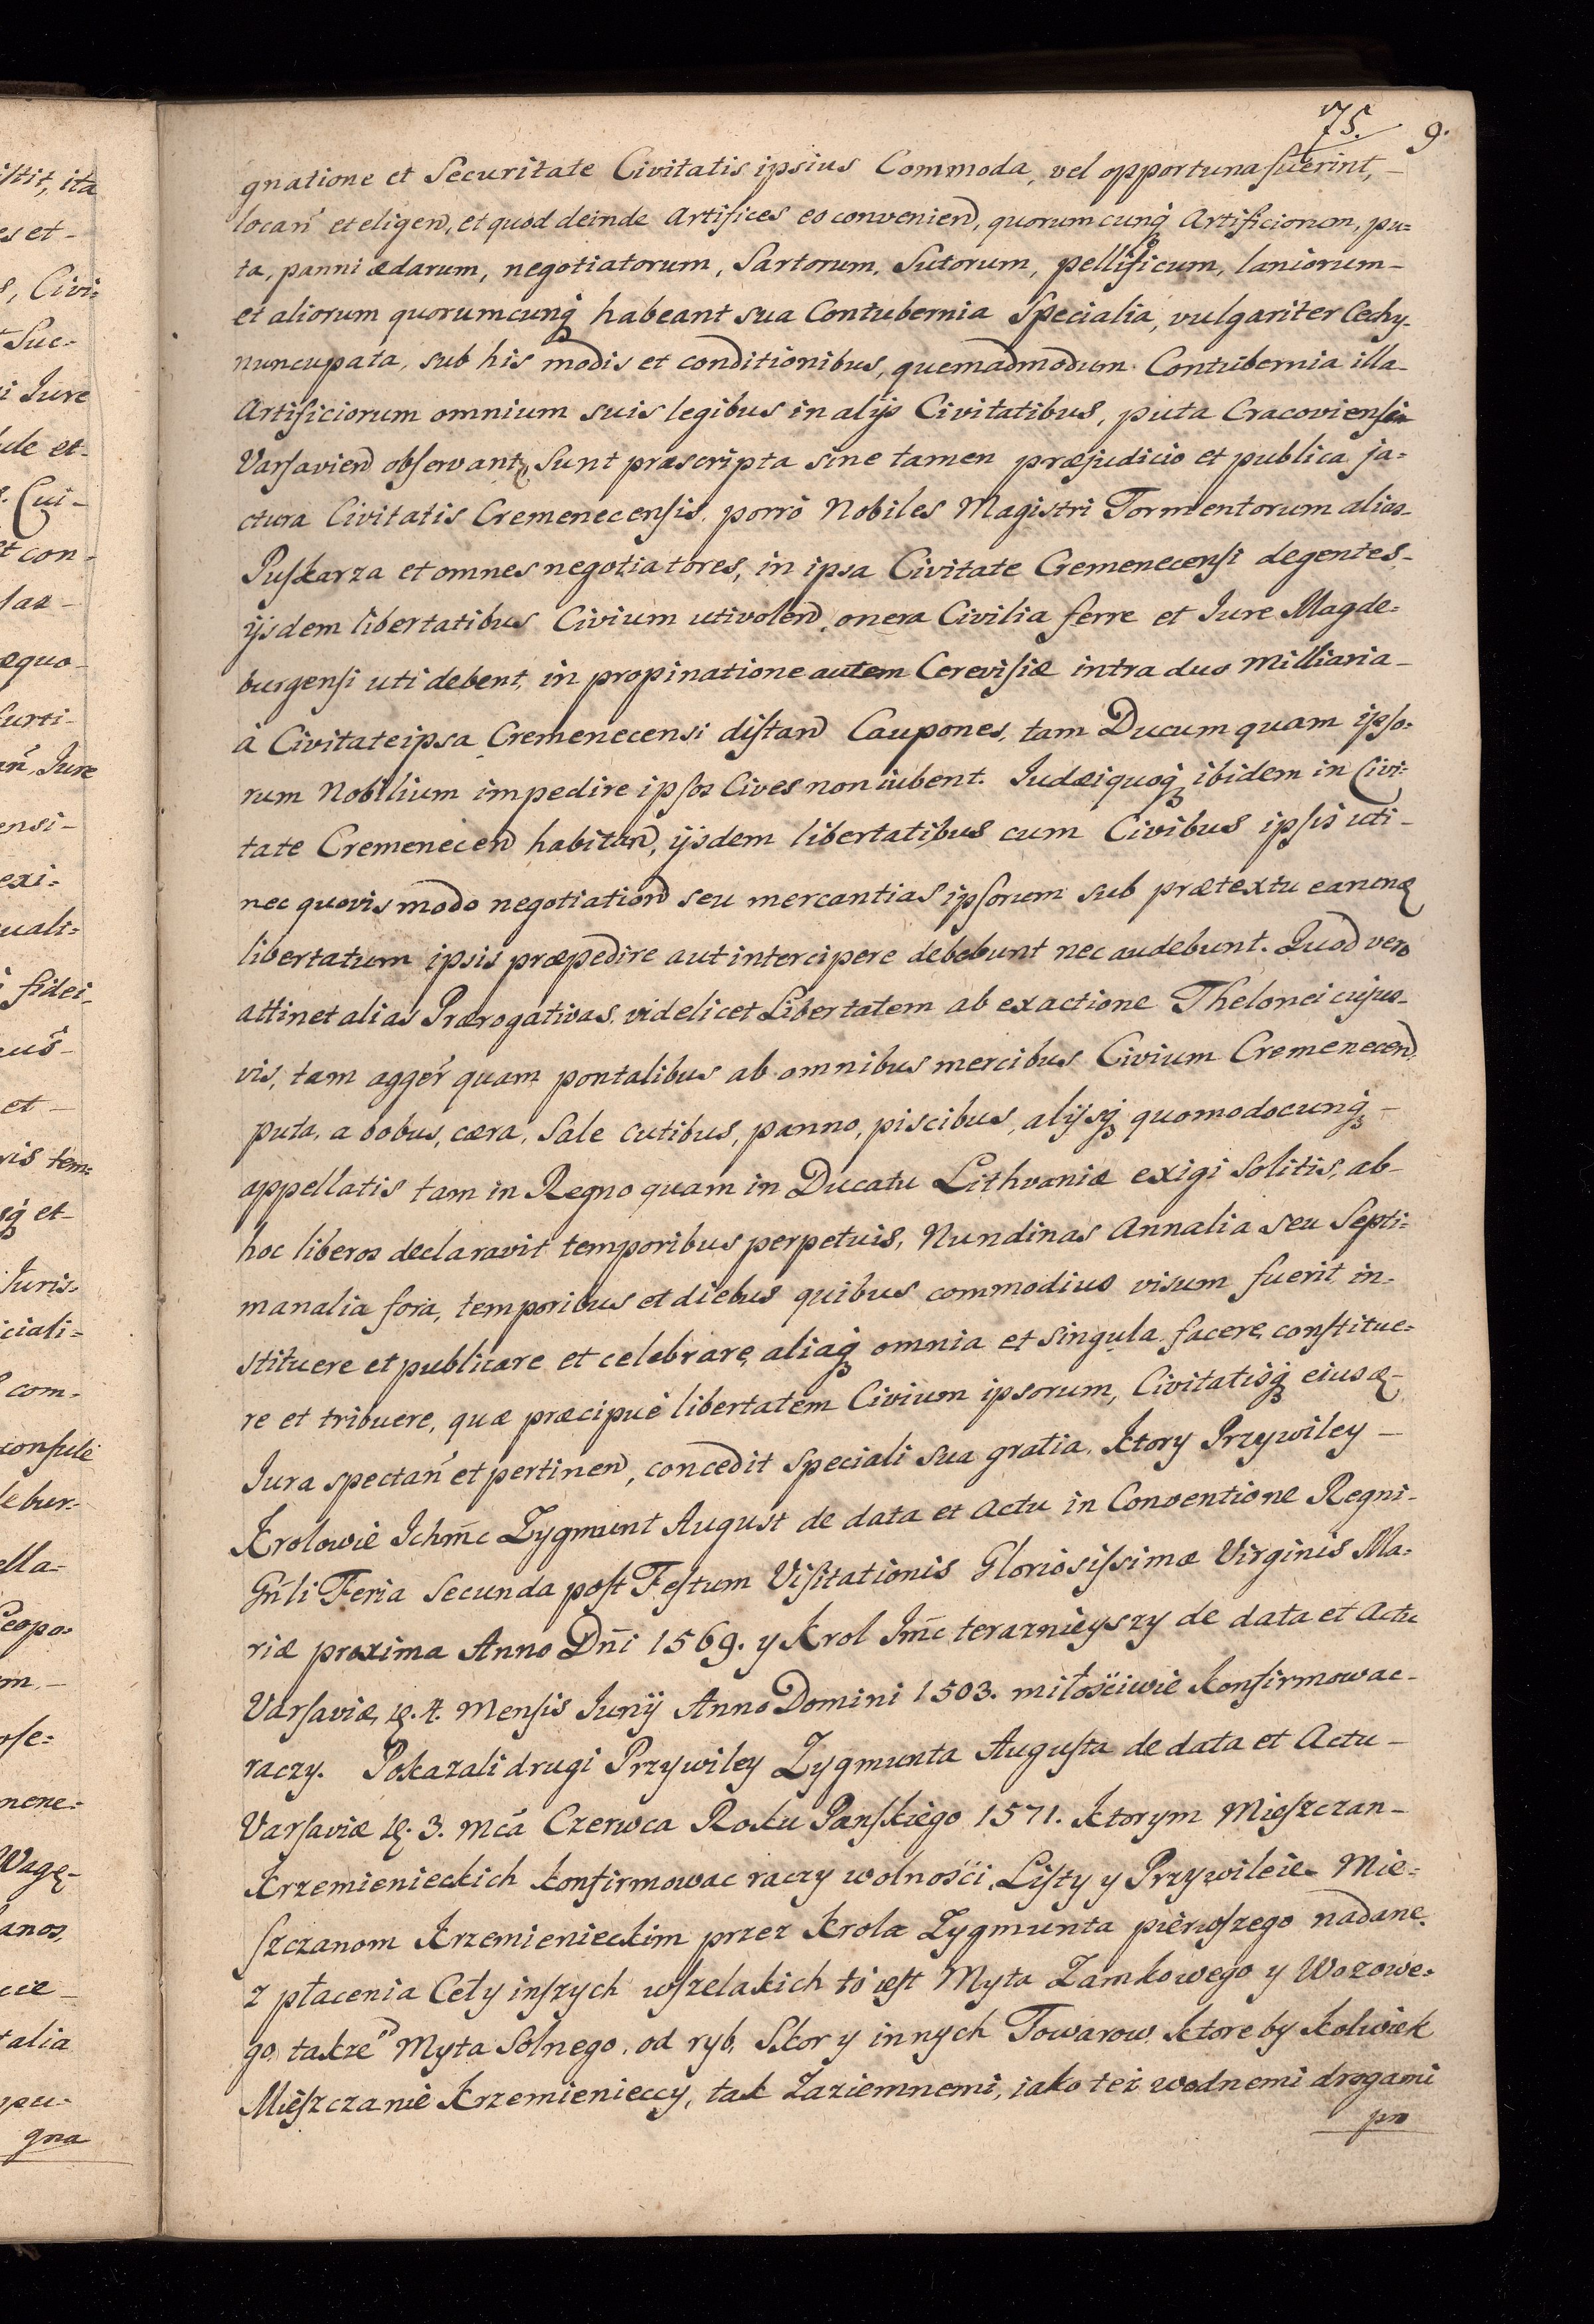 75. 9.
gnatione et Securitate Civitatis ipsius Commoda, vel opportuna fuerint, –
locań et eligend, et quod deinde Artifices eo conveniend, quorumcunq Artificiorum, pu=
ta, panni ædarum, negotiatorum, Sartorum, Sutorum, pellificum, laniorum –
et aliorum quorumcunq habeant sua Contubernia Specialia, vulgariter Cechy –
nuncupata, sub his modis et conditionibus, quemadmodum Contubernia illa –
Artificiorum omnium suis legibus in alijs Civitatibus, puta Cracoviensi
Varsaviend observant, Sunt præscripta sine tamen præjudicio et publica ja=
ctura Civitatis Cremenecensis. porro Nobiles Magistri Tormentorum alias –
Puskarza et omnes negotiatores, in ipsa Civitate Cremenecensi degentes –
ijsdem libertatibus Civium uti volend, onera Civilia ferre et Jure Magde=
burgensi uti debent, in propinatione autem Cerevisiæ intra duo Milliaria –
à Civitate ipsa Cremenecensi distand Caupones, tam Ducum quam ipso=
rum Nobilium impedire ipsos Cives non iubent. Judæi quoq ibidem in Civi=
tate Cremenecend habitand, ijsdem libertatibus cum Civibus ipsis uti –
nec quovis modo negotiationd seu mercantias ipsorum sub prætextu earum
libertatum ipsis præpedire aut intercipere debebunt nec audebunt. Quod vero
attinet alias Prærogativas, videlicet Libertatem ab exactione Thelonei cujus–
vis, tam agger quam pontalibus ab omnibus mercibus Civium Cremenecend
puta, a bobus, cæra, Sale cutibus, panno, piscibus, alijsq quomodocunq –
appellatis tam in Regno quam in Ducatu Lithvaniæ exigi solitis, ab –
hoc liberos declaravit temporibus perpetuis, Nundinas Annalia seu Septi=
manalia fora, temporibus et diebus quibus commodius visum fuerit in=
stituere et publicare et celebrare, aliaq omnia et singula facere, constitue=
re et tribuere, quæ præcipuè libertatem Civium ipsorum, Civitatisq eius
Jura spectań et pertinend, concedit speciali sua gratia. Ktory Przywiley –
Krolowie Ichmc Zygmunt August de data et Actu in Conventione Regni –
Gńli Feria Secunda post Festum Visitationis Gloriosissimæ Virginis Ma=
riæ proxima Anno Dni 1569. y Krol Jmc teraznieyszy de data et Actu
Varsaviæ, 4. Mensis Junij Anno Domini 1503. miłościwie Konfirmowac –
raczy. Pokazali drugi Przywiley Zygmunta Augusta de data et Actu –
Varsaviæ 3. Mca Czerwca Roku Panskiego 1571. Ktorym Mieszczan –
Krzemienieckich konfirmowac raczy wolności, Listy y Przywileie Mie=
szczanom Krzemienieckim przez Krola Zygmunta pierwszego nadane.
z płacenia Cety inszych wszelakich to iest Myta Zamkowego y Wozowe=
go, takze Myta Solnego, od ryb, Skor y innych Towarow ktore by kolwiek
Mieszczanie Krzemienieccy, tak Zaziemnemi, iako tez wodnemi drogami
pro